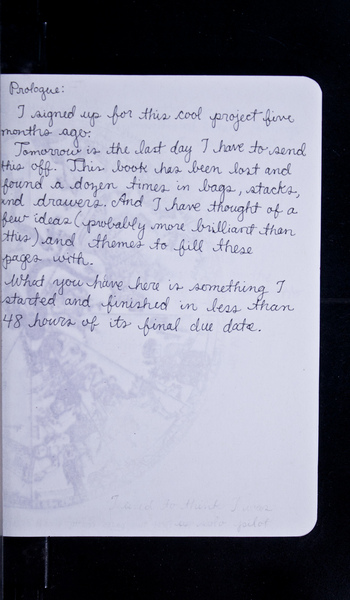 Prologue:
I signed up for this cool project five
months ago.
Tomorrow is the last day I have to send
this off. This book has been lost and
found a dozen times in bags, stacks,
and drawers. And I have thought of a
few ideas (probably more brilliant than
this) and themes to fill these
pages with.
What you have here is something I
started and finished in less than
48 hours of its final due date.